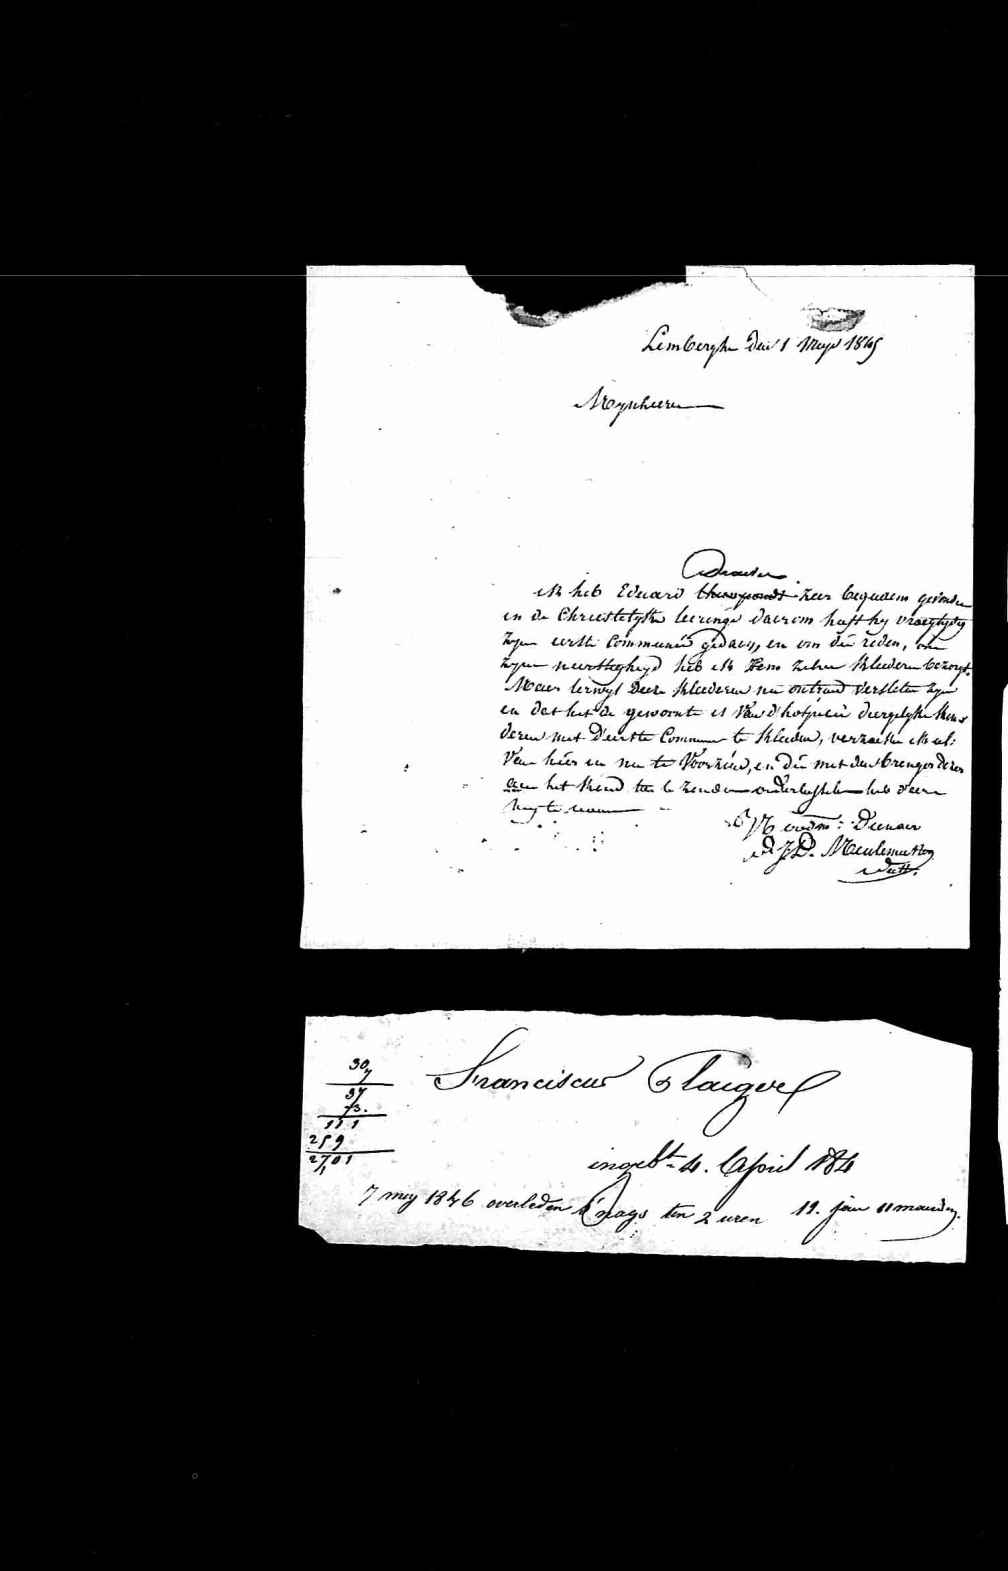 Lemberghe den 1 Meye 1845
Mynheere
Directeur
ik heb Eduard zeer bequaem gevonden
in de Christelyke leeringe daerom heeft hy vroegtydig
zyne eerste Communie gedaen, en om die reden, om
zyne neerstigheyd heb ik hem zelve kleederen bezorgt.
Maer terwyl deeze kleederen nu ontrend versleten zyn
en dat het de gewoonte is van d'hospicie diergelyke kin-
deren met d'eerste Commun te kleeden, verzoeke ik ul:
van hier in nu te voorzien, en die met den brenger dezer
aen het kind te zenden
UE oodm: Dienaer
J D. Meulemeester
30
7
37
73.
111
259
2701
Franciscus
ingebt 4. April 184
7 mey 1846 overleden s'nags ten 2 uren 11. jaer 11 maenden.